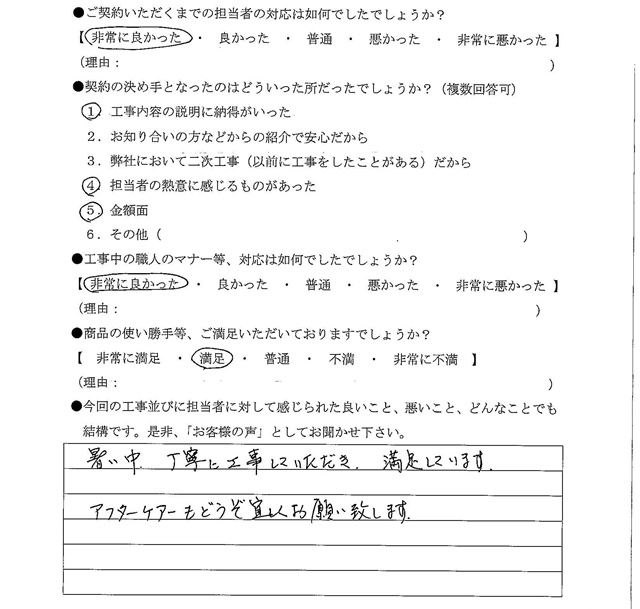 ●ご契約いただくまでの担当者の対応は如何でしたでしょうか？
【 非常に良かった ・ 良かった ・ 普通 ・ 悪かった ・ 非常に悪かった 】
（理由：　　　　　）
●契約の決め手となったのはどういった所だったでしょうか？（複数回答可）
1 工事内容の説明に納得がいった
2．お知り合いの方などからの紹介で安心だから
3．弊社において二次工事（以前に工事をしたことがある）だから
4 担当者の熱意に感じるものがあった
5．金額面
6．その他（　　　　　）
●工事中の職人のマナー等、対応は如何でしたでしょうか？
【 非常に良かった ・ 良かった ・ 普通 ・ 悪かった ・ 非常に悪かった 】
（理由：　　　　　）
●商品の使い勝手等、ご満足いただいておりますでしょうか？
【 非常に満足 ・ 満足 ・ 普通 ・ 不満 ・ 非常に不満 】
（理由：　　　　　）
●今回の工事並びに担当者に対して感じられた良いこと、悪いこと、どんなことでも
結構です。是非、「お客様の声」としてお聞かせ下さい。
暑い中、丁寧に工事していただき、満足しています。
アフターケアーもどうぞ宜しくお願い致します。